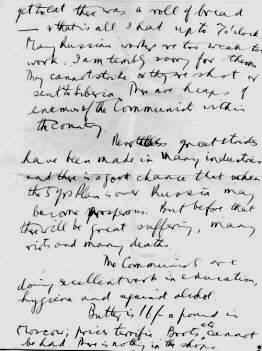 get to eat there was a roll of bread
— & that is all I had up to 7 o'clock
Many Russian workers are too weak to
work. I am terribly sorry for them.
They cannot strike or they are shot or
sent to Siberia. There are heaps of
enemies of the Communist within
the country.
Nevertheless great strides
have been made in many industries
and there is a good chance that when
the 5 yrs Plan is over Russia may
become prosperous. But before that
there will be great suffering, many
riots and many deaths.
The Communists are
doing excellent work in education,
hygiene and against alcohol.
Butter is 16/- a pound in
Moscow; prices terrific. Boots etc cannot
be had. There is nothing in the shops.